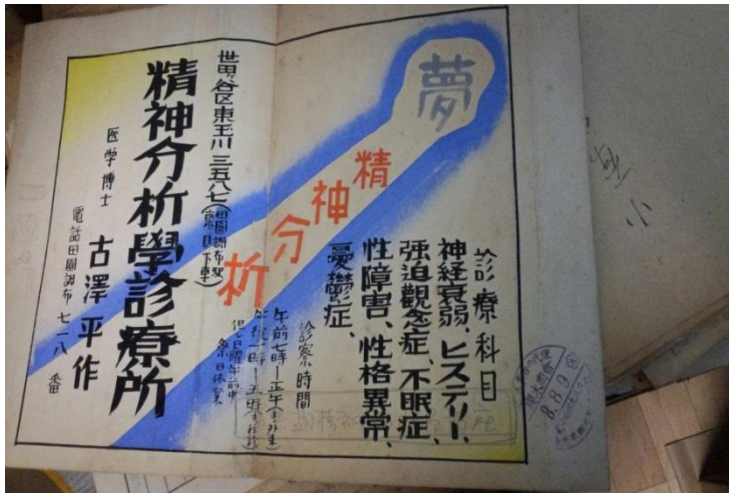 夢
精神分析
診療科目
神経衰弱、ヒステリー、
强迫觀念症、不眠症、
性障害、性格異常、
憂鬱症、
診察時間
午前七時―正午
午後一時―五時
祭日休業
世田谷区東玉川三五八七
精神分析學診療所
医学博士 古澤平作
電話田園調布七一八番
8.8.9